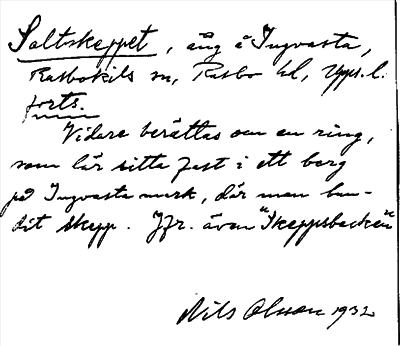 Saltskeppet, äng å Ingvasta,
Rasbokils sn, Rasbo hd, Upps. l.
forts.
Vidare berättas om en ring,
som lär sitta fast i ett berg
på Ingvasta mark, där man bun-
dit skepp. Jfr. även "Skeppsbacken"
Nils Olsson 1932